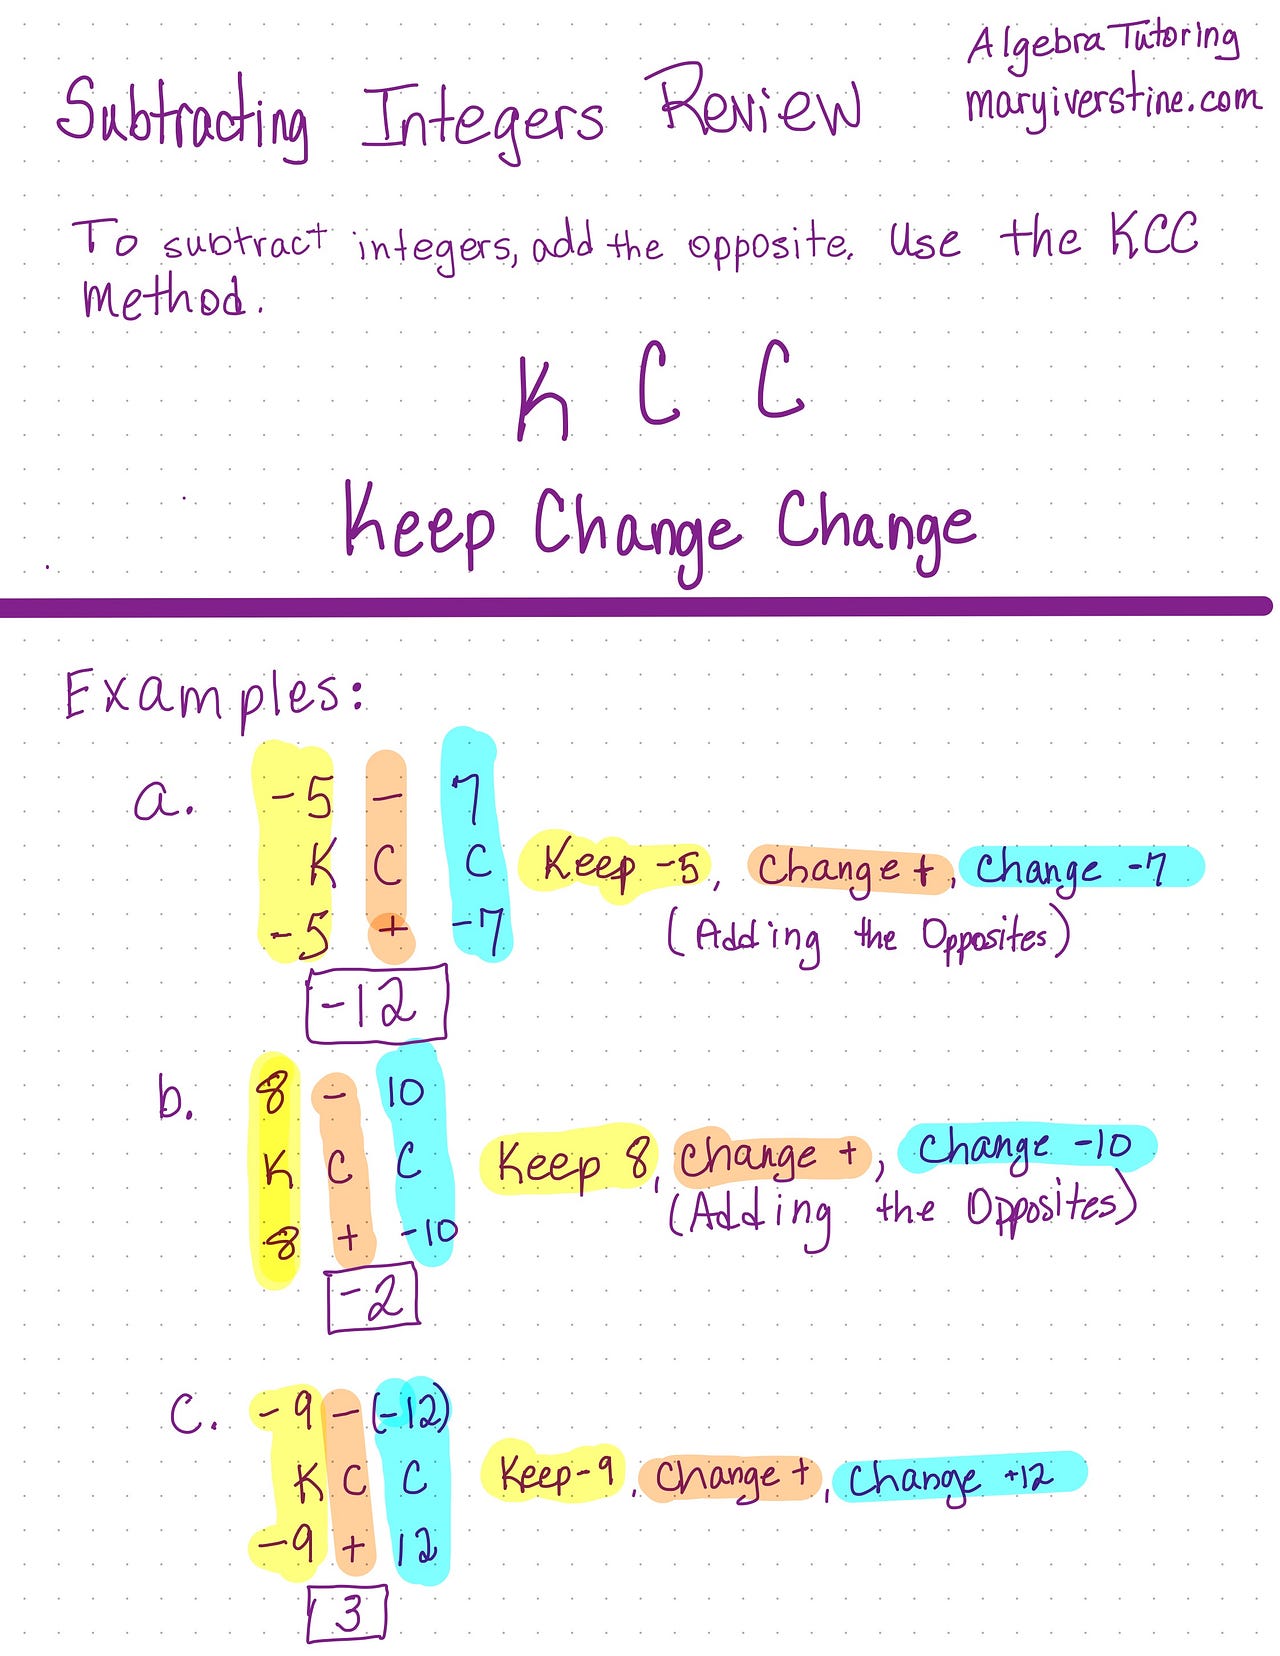 Algebra Tutoring
maryiverstine.com
Subtracting Integers Review
To subtract integers, add the opposite. Use the KCC
method.
K C C
Keep Change Change
Examples:
a. -5 - 7
K C C Keep -5, Change +, Change -7
-5 + -7 (Adding the Opposites)
-12
b. 8 - 10
K C C Keep 8, Change +, Change -10
8 + -10 (Adding the Opposites)
-2
c. -9 - (-12)
K C C Keep -9, Change +, Change +12
-9 + 12
3